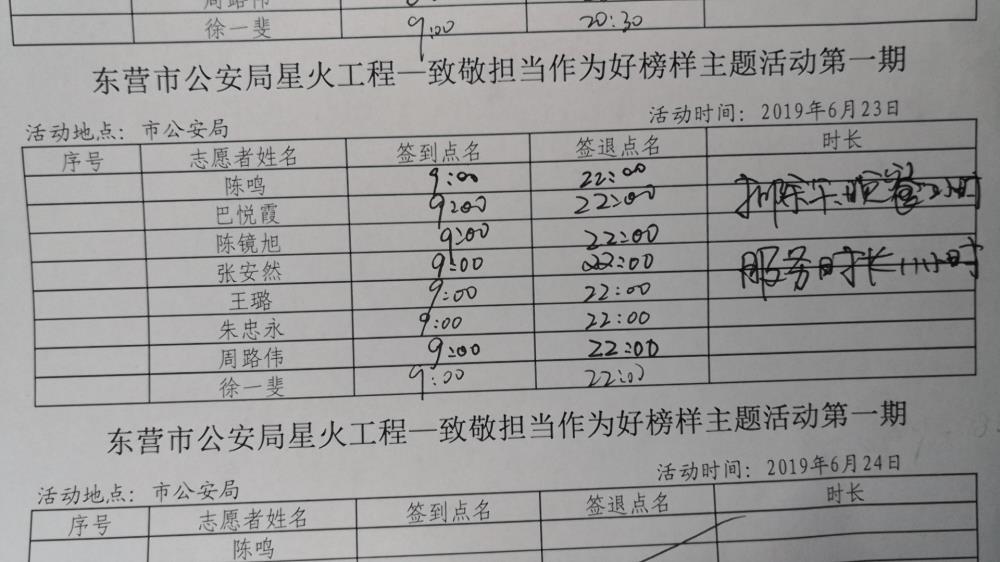 周路伟
徐一斐 9:00 20:30
东营市公安局星火工程—致敬担当作为好榜样主题活动第一期
活动地点：市公安局 活动时间：2019年6月23日
序号 志愿者姓名 签到点名 签退点名 时长
陈鸣 9:00 22:00
巴悦霞 9:00 22:00
陈镜旭 9:00 22:00
张安然 9:00 22:00 服务时长11小时
王璐 9:00 22:00
朱忠永 9:00 22:00
周路伟 9:00 22:00
徐一斐 9:00 22:00
东营市公安局星火工程—致敬担当作为好榜样主题活动第一期
活动地点：市公安局 活动时间：2019年6月24日
序号 志愿者姓名 签到点名 签退点名 时长
陈鸣